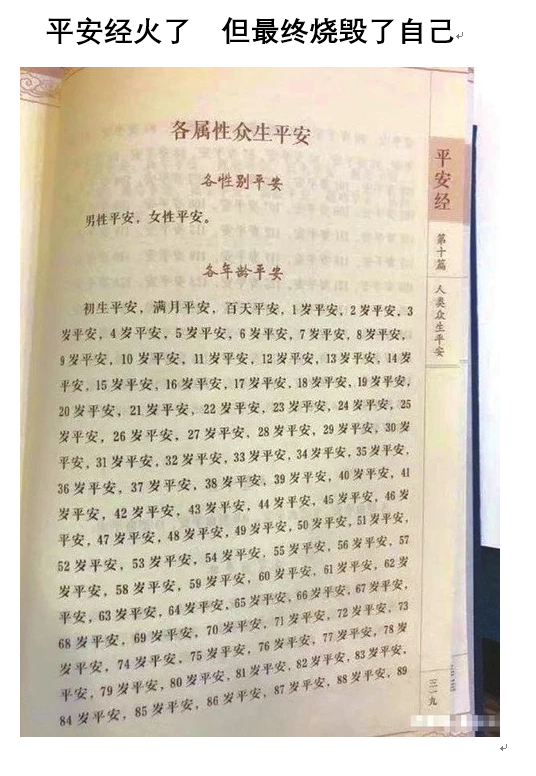 平安经火了 但最终烧毁了自己
各属性众生平安
各性别平安
男性平安，女性平安。
各年龄平安
初生平安，满月平安，百天平安，1岁平安，2岁平安，3
岁平安，4岁平安，5岁平安，6岁平安，7岁平安，8岁平安，
9岁平安，10岁平安，11岁平安，12岁平安，13岁平安，14岁
平安，15岁平安，16岁平安，17岁平安，18岁平安，19岁平安，
20岁平安，21岁平安，22岁平安，23岁平安，24岁平安，25
岁平安，26岁平安，27岁平安，28岁平安，29岁平安，30岁
平安，31岁平安，32岁平安，33岁平安，34岁平安，35岁平安，
36岁平安，37岁平安，38岁平安，39岁平安，40岁平安，41
岁平安，42岁平安，43岁平安，44岁平安，45岁平安，46岁
平安，47岁平安，48岁平安，49岁平安，50岁平安，51岁平安，
52岁平安，53岁平安，54岁平安，55岁平安，56岁平安，57
岁平安，58岁平安，59岁平安，60岁平安，61岁平安，62岁
平安，63岁平安，64岁平安，65岁平安，66岁平安，67岁平安，
68岁平安，69岁平安，70岁平安，71岁平安，72岁平安，73
岁平安，74岁平安，75岁平安，76岁平安，77岁平安，78岁
平安，79岁平安，80岁平安，81岁平安，82岁平安，83岁平安，
84岁平安，85岁平安，86岁平安，87岁平安，88岁平安，89
平安经
第十篇
人类众生平安
三一九